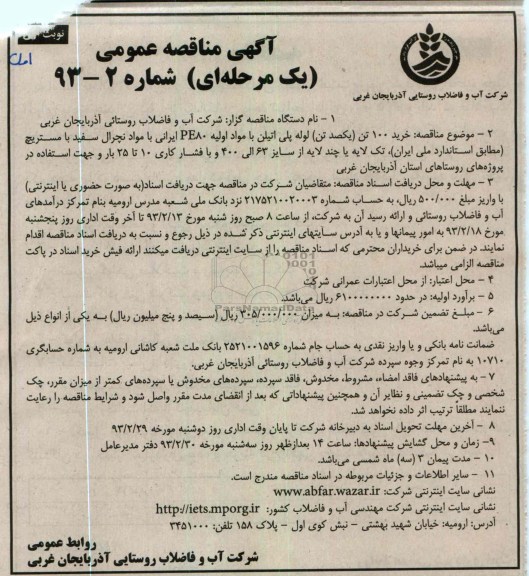 نوبت
آگهی مناقصه عمومی
(یک مرحله‌ای) شماره ۲ - ۹۳
شرکت آب و فاضلاب روستایی آذربایجان غربی
۱ - نام دستگاه مناقصه گزار: شرکت آب و فاضلاب روستائی آذربایجان غربی
۲ - موضوع مناقصه: خرید ۱۰۰ تن (یکصد تن) لوله پلی اتیلن با مواد اولیه PE۸۰ ایرانی با مواد نچرال سفید با مستربچ
(مطابق استاندارد ملی ایران)، تک لایه یا چند لایه از سایز ۶۳ الی ۴۰۰ و با فشار کاری ۱۰ تا ۲۵ بار و جهت استفاده در
پروژه‌های روستاهای استان آذربایجان غربی
۳ - مهلت و محل دریافت اسناد مناقصه: متقاضیان شرکت در مناقصه جهت دریافت اسناد(به صورت حضوری یا اینترنتی)
با واریز مبلغ ۵۰۰/۰۰۰ ریال، به حساب شماره ۲۱۷۵۲۱۰۰۲۰۰۰۳ نزد بانک ملی شعبه مدرس ارومیه بنام تمرکز درآمدهای
آب و فاضلاب روستائی و ارائه رسید آن به شرکت، از ساعت ۸ صبح روز شنبه مورخ ۹۳/۲/۱۳ تا آخر وقت اداری روز پنجشنبه
مورخ ۹۳/۲/۱۸ به امور پیمانها و یا به آدرس سایتهای اینترنتی ذکر شده در ذیل رجوع و نسبت به دریافت اسناد مناقصه اقدام
نمایند. در ضمن برای خریداران محترمی که اسناد مناقصه را از سایت اینترنتی دریافت میکنند ارائه فیش خرید اسناد در پاکت
مناقصه الزامی میباشد.
۴ - محل اعتبار: از محل اعتبارات عمرانی شرکت
۵ - برآورد اولیه: در حدود ۶۱۰۰۰۰۰۰۰۰ ریال می‌باشد.
۶ - مبلغ تضمین شرکت در مناقصه: به میزان ۳۰۵/۰۰۰/۰۰۰ ریال (سیصد و پنج میلیون ریال) به یکی از انواع ذیل
می‌باشد.
ضمانت نامه بانکی و یا واریز نقدی به حساب جام شماره ۲۵۲۱۰۰۱۵۹۶ بانک ملت شعبه کاشانی ارومیه به شماره حسابگری
۱۰۷۱۰ به نام تمرکز وجوه سپرده شرکت آب و فاضلاب روستائی آذربایجان غربی.
۷ - به پیشنهادهای فاقد امضاء، مشروط، مخدوش، فاقد سپرده، سپرده‌های مخدوش یا سپرده‌های کمتر از میزان مقرر، چک
شخصی و چک تضمینی و نظایر آن و همچنین پیشنهاداتی که بعد از انقضای مدت مقرر واصل شود و شرایط مناقصه را رعایت
ننمایند مطلقا ترتیب اثر داده نخواهد شد.
۸ - آخرین مهلت تحویل اسناد به دبیرخانه شرکت تا پایان وقت اداری روز دوشنبه مورخه ۹۳/۲/۲۹
۹- زمان و محل گشایش پیشنهادها: ساعت ۱۴ بعدازظهر روز سه‌شنبه مورخه ۹۳/۲/۳۰ دفتر مدیرعامل
۱۰ - مدت پیمان ۳ (سه) ماه شمسی می‌باشد.
۱۱ - سایر اطلاعات و جزئیات مربوطه در اسناد مناقصه مندرج است.
نشانی سایت اینترنتی شرکت: www.abfar.wazar.ir
نشانی سایت اینترنتی شرکت مهندسی آب و فاضلاب کشور: http://iets.mporg.ir
آدرس: ارومیه: خیابان شهید بهشتی - نبش کوی اول - پلاک ۱۵۸ تلفن: ۳۴۵۱۰۰۰
روابط عمومی
شرکت آب و فاضلاب روستایی آذربایجان غربی